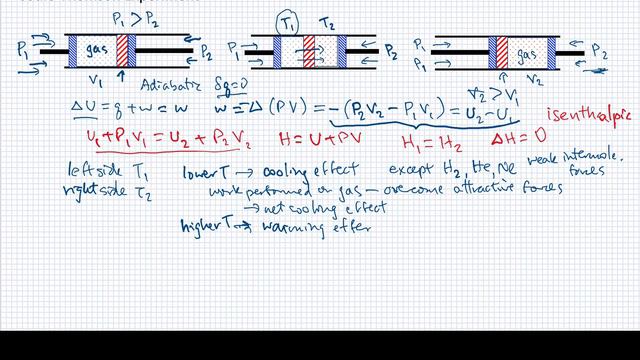 P₁ > P₂
P₁ gas P₂
V₁
T₁ T₂
P₁ P₂
P₁ P₁ gas P₂
V₂
V₂ > V₁
Adiabatic δq=0
ΔU = q + w = w w = Δ(PV) = -(P₂V₂ - P₁V₁) = U₂ - U₁
isenthalpic
U₁ + P₁V₁ = U₂ + P₂V₂ H = U + PV H₁ = H₂ ΔH = 0
left side T₁ lower T → cooling effect except H₂, He, Ne weak intermole. forces
right side T₂ work performed on gas – overcome attractive forces
→ net cooling effect
higher T → warming effer